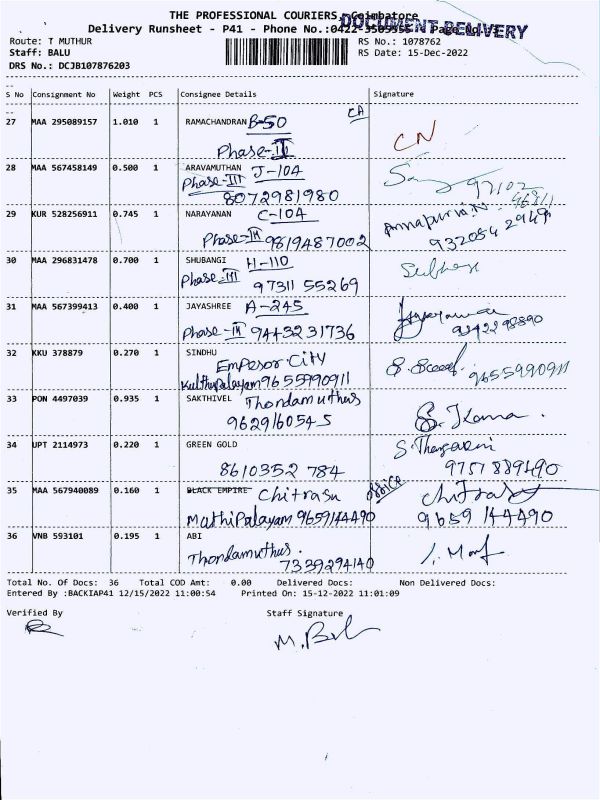 THE PROFESSIONAL COURIERS, Coimbatore
DOCUMENT DELIVERY
Delivery Runsheet - P41 - Phone No.:0422-3509555 / Page No.
Route: T MUTHUR RS No.: 1078762
Staff: BALU RS Date: 15-Dec-2022
DRS No.: DCJB107876203
S No Consignment No Weight PCS Consignee Details Signature
27 MAA 295089157 1.010 1 RAMACHANDRAN B-50 CA
Phase-III CN
28 MAA 567458149 0.500 1 ARAVAMUTHAN J-104
Phase-III
8072981980
29 KUR 528256911 0.745 1 NARAYANAN C-104 Annapurna.N
Phase-III 9819487002
30 MAA 296831478 0.700 1 SHUBANGI H-110
Phase-III 97311 55269
31 MAA 567399413 0.400 1 JAYASHREE A-245
Phase-III 9443231736
32 KKU 378879 0.270 1 SINDHU
Emperor City
Kulthupalayam 9655990911 9655990911
33 PON 4497039 0.935 1 SAKTHIVEL Thondamuthur
9629160545
34 UPT 2114973 0.220 1 GREEN GOLD
8610352 784 9757889490
35 MAA 567940089 0.160 1 BLACK EMPIRE Chitrasu office
Muthipalayam 9659144490 9659 144490
36 VNB 593101 0.195 1 ABI
Thondamuthur.
7339294140
Total No. Of Docs: 36 Total COD Amt: 0.00 Delivered Docs: Non Delivered Docs:
Entered By :BACKIAP41 12/15/2022 11:00:54 Printed On: 15-12-2022 11:01:09
Verified By Staff Signature